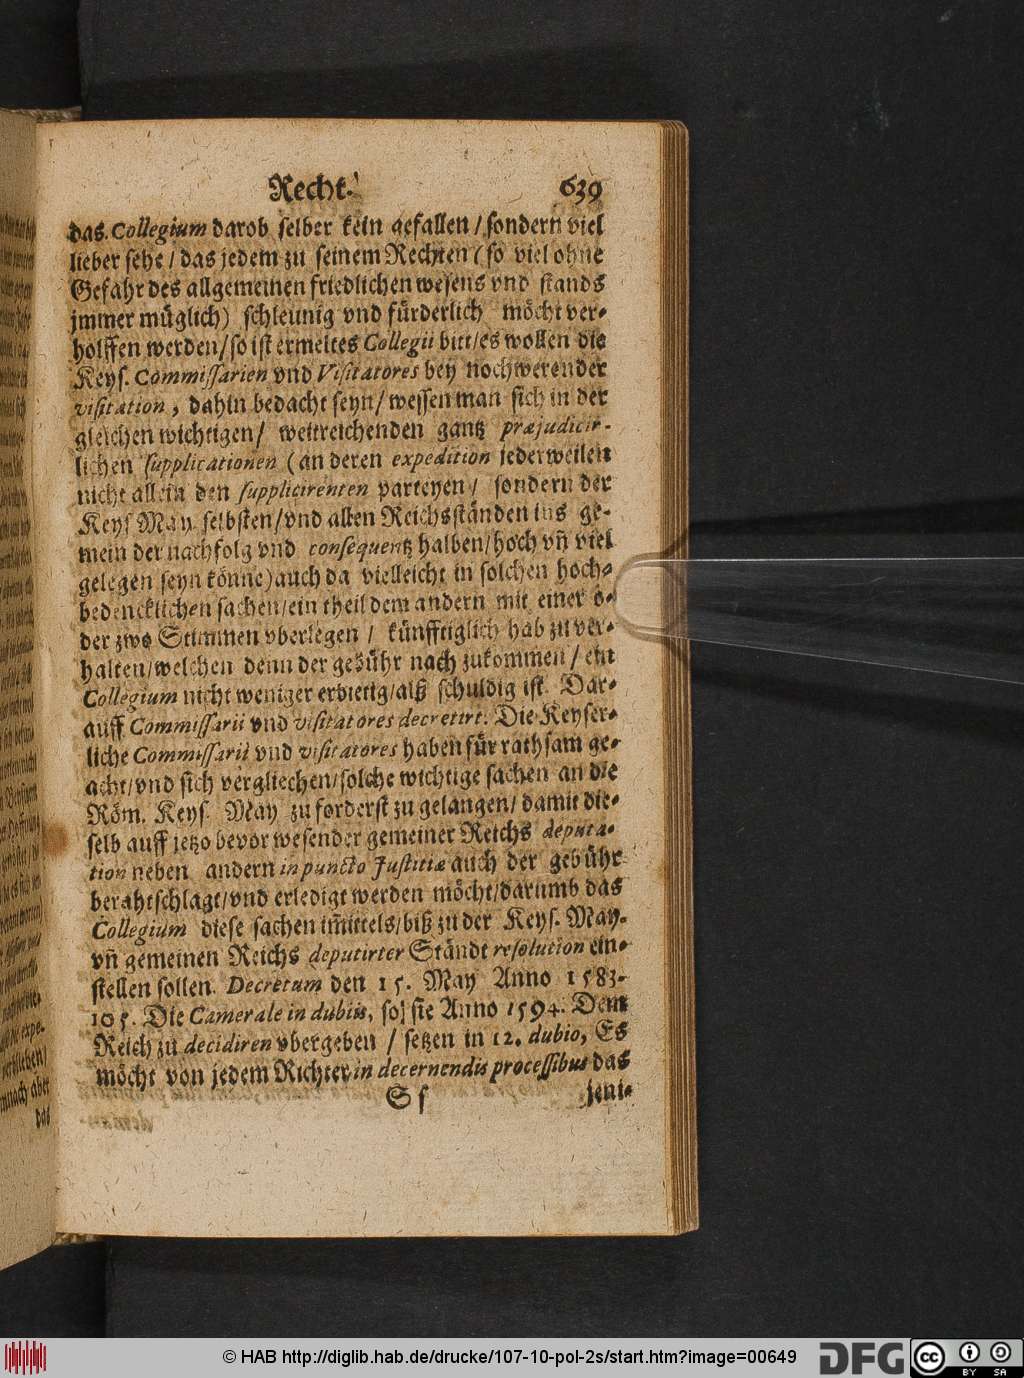 Recht. 639
das Collegium darob selber kein gefallen / sondern viel
lieber sehe / das jedem zu seinem Rechten (so viel ohne
Gefahr des allgemeinen friedlichen wesens vnd stands
jmmer müglich) schleunig vnd fürderlich möcht ver-
holffen werden / so ist ermeltes Collegii bitt / es wollen die
Keys. Commissarien vnd Visitatores bey nochwerender
visitation, dahin bedacht seyn / wessen man sich in der
gleichen wichtigen / weitreichenden gantz præjudicir-
lichen supplicationen (an deren expedition jederweilen
nicht allein den supplicirenten parteyen / sondern der
Keys May. selbsten / vnd allen Reichsständen ins ge-
mein der nachfolg vnd consequentz halben / hoch vn̄ viel
gelegen seyn könne) auch da vielleicht in solchen hoch-
bedencklichen sachen / ein theil dem andern mit einer o-
der zwo Stimmen vberlegen / künfftiglich hab zu ver-
halten / welchen denn der gebühr nach zukommen / ein
Collegium nicht weniger erbietig / alß schuldig ist. Dar-
auff Commissarii vnd visitatores decretirt. Die Keyser-
liche Commissarii vnd visitatores haben für rathsam ge-
acht / vnd sich vergliechen / solche wichtige sachen an die
Röm. Keys. May zu forderst zu gelangen / damit die-
selb auff jetzo bevor wesender gemeiner Reichs deputa-
tion neben andern in puncto Justitiæ auch der gebühr
berahtschlagt / vnd erledigt werden möcht / darumb das
Collegium diese sachen im̄ittels / biß zu der Keys. May.
vn̄ gemeinen Reichs deputirter Ständt resolution ein-
stellen sollen. Decretum den 15. May Anno 1583.
105. Die Camerale in dubiis, so sie Anno 1594. Dem
Reich zu decidiren vbergeben / setzen in 12. dubio, Es
möcht von jedem Richter in decernendis processibus das
Sf jeni-
© HAB http://diglib.hab.de/drucke/107-10-pol-2s/start.htm?image=00649
DFG cc BY SA